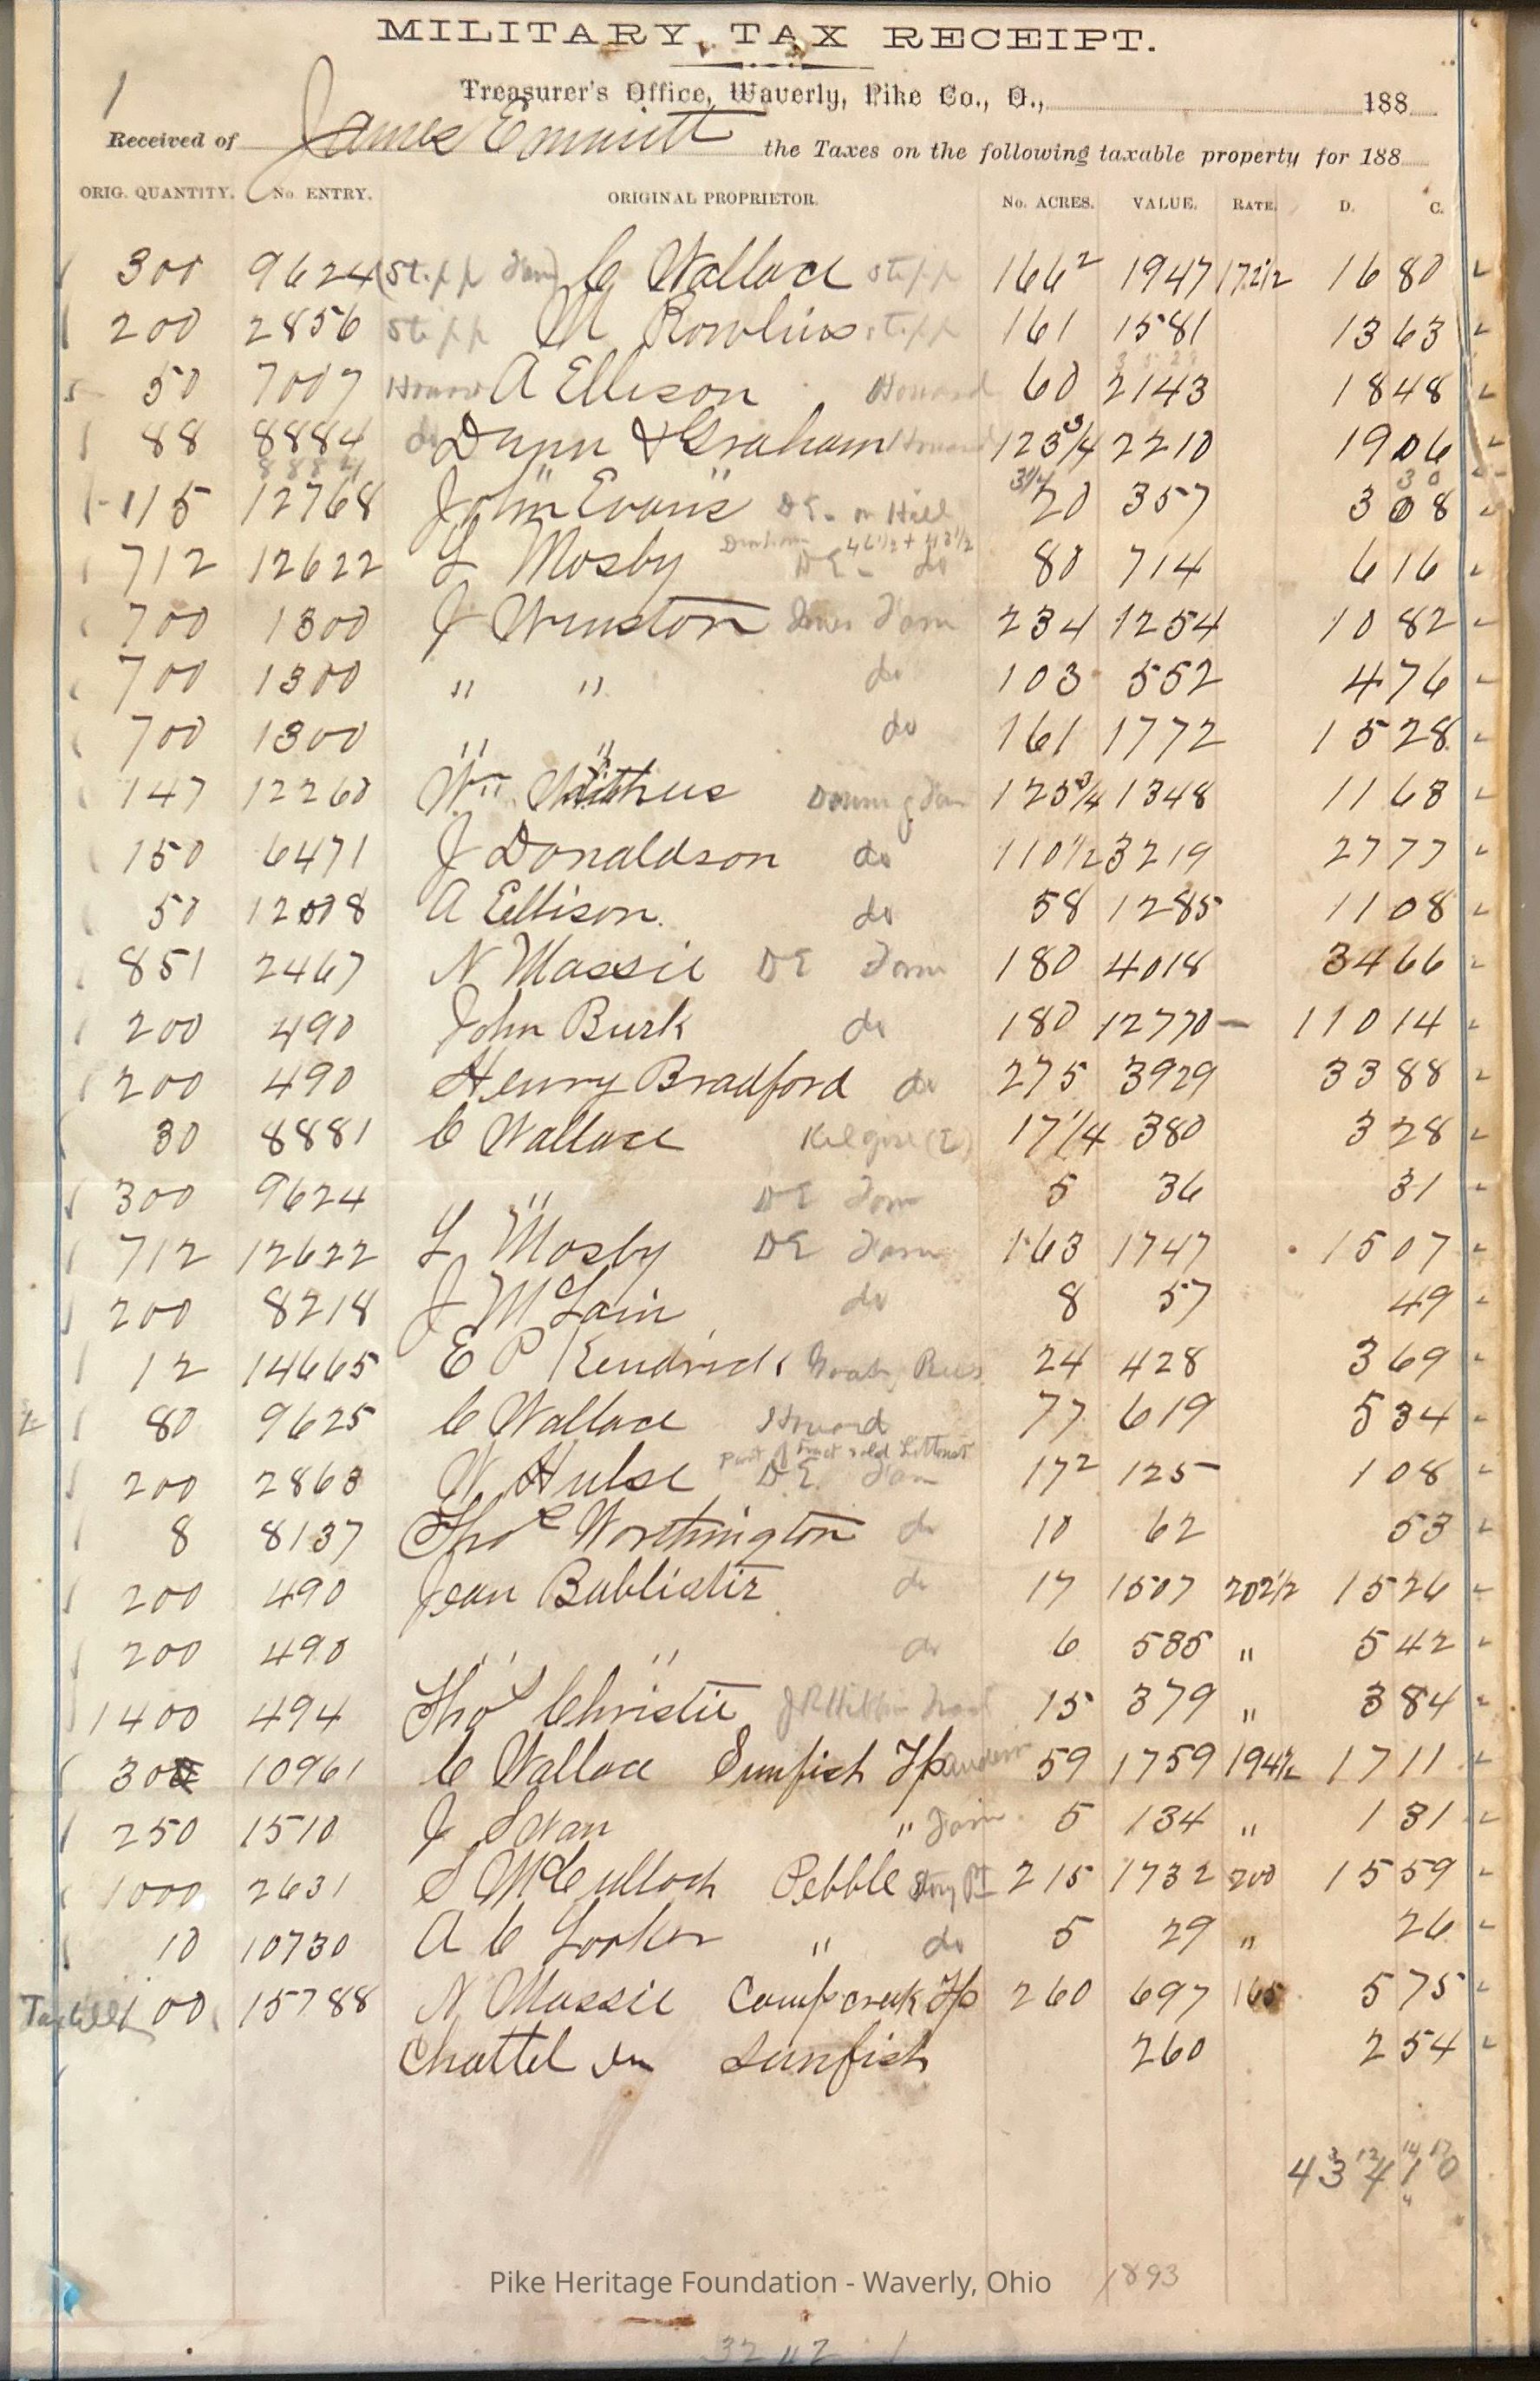 MILITARY TAX RECEIPT.
1
Treasurer's Office, Waverly, Pike Co., O., 188
Received of James Emmitt the Taxes on the following taxable property for 188
ORIG. QUANTITY. No. ENTRY. ORIGINAL PROPRIETOR. No. ACRES. VALUE. RATE. D. C.
300 9624 (Stipp Farm) C Wallace Stipp 166 2 1947 172 1/2 16 80
200 2856 Stipp M Rowlins Stipp 161 1581 13 63
50 7007 Howard A Ellison Howard 60 2143 18 48
88 8884 do Dunn & Graham Howard 123 3/4 2210 19 06
115 12768 John Evans DE - on Hill 20 357 3 08
712 12622 L Mosby DE - do 80 714 6 16
700 1300 J Winston Jones Farm 234 1254 10 82
700 1300 " " do 103 552 4 76
700 1300 " " do 161 1772 15 28
147 12260 Wm Downing Farm 125 3/4 1348 11 63
150 6471 J Donaldson do 110 1/2 3219 27 77
50 12008 A Ellison. do 58 1285 11 08
851 2467 N Massie DE Farm 180 4018 34 66
200 490 John Burk do 180 12770 110 14
200 490 Henry Bradford do 275 3929 33 88
30 8881 C Wallace Kilgore (E) 17 1/4 380 3 28
300 9624 " DE Farm 5 36 31
712 12622 L Mosby DE Farm 163 1747 15 07
200 8218 J McLain do 8 57 49
12 14665 E P Kendrick 24 428 3 69
80 9625 C Wallace Howard 77 619 5 34
Part of tract sold
200 2863 W Hulse D.E. Farm 17 2 125 1 08
8 8137 Thos Worthington do 10 62 53
200 490 Jean Bablistir do 17 1507 202 1/2 15 26
200 490 " " do 6 535 " 5 42
1400 494 Thos Christie 15 379 " 3 84
300 10961 C Wallace Sunfish Tp 59 1759 194 1/2 17 11
250 1510 J Swan " Farm 5 134 " 1 31
1000 2631 S McCulloch Pebble 215 1732 200 15 59
10 10730 A C Looker " do 5 29 " 26
100 15788 N Massie Camp creek Tp 260 697 165 5 75
Chattel in Sunfish 260 2 54
434 10
Pike Heritage Foundation - Waverly, Ohio 1893